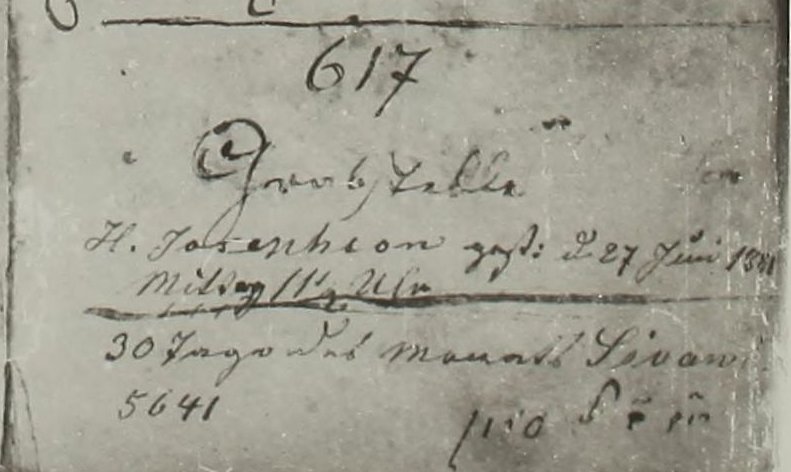 617
Grabstelle
H. Josephson gest: d 27 Juni 1881
Mittag 11½ Uhr
30 Tage des Monats Sivan
5641
סיון